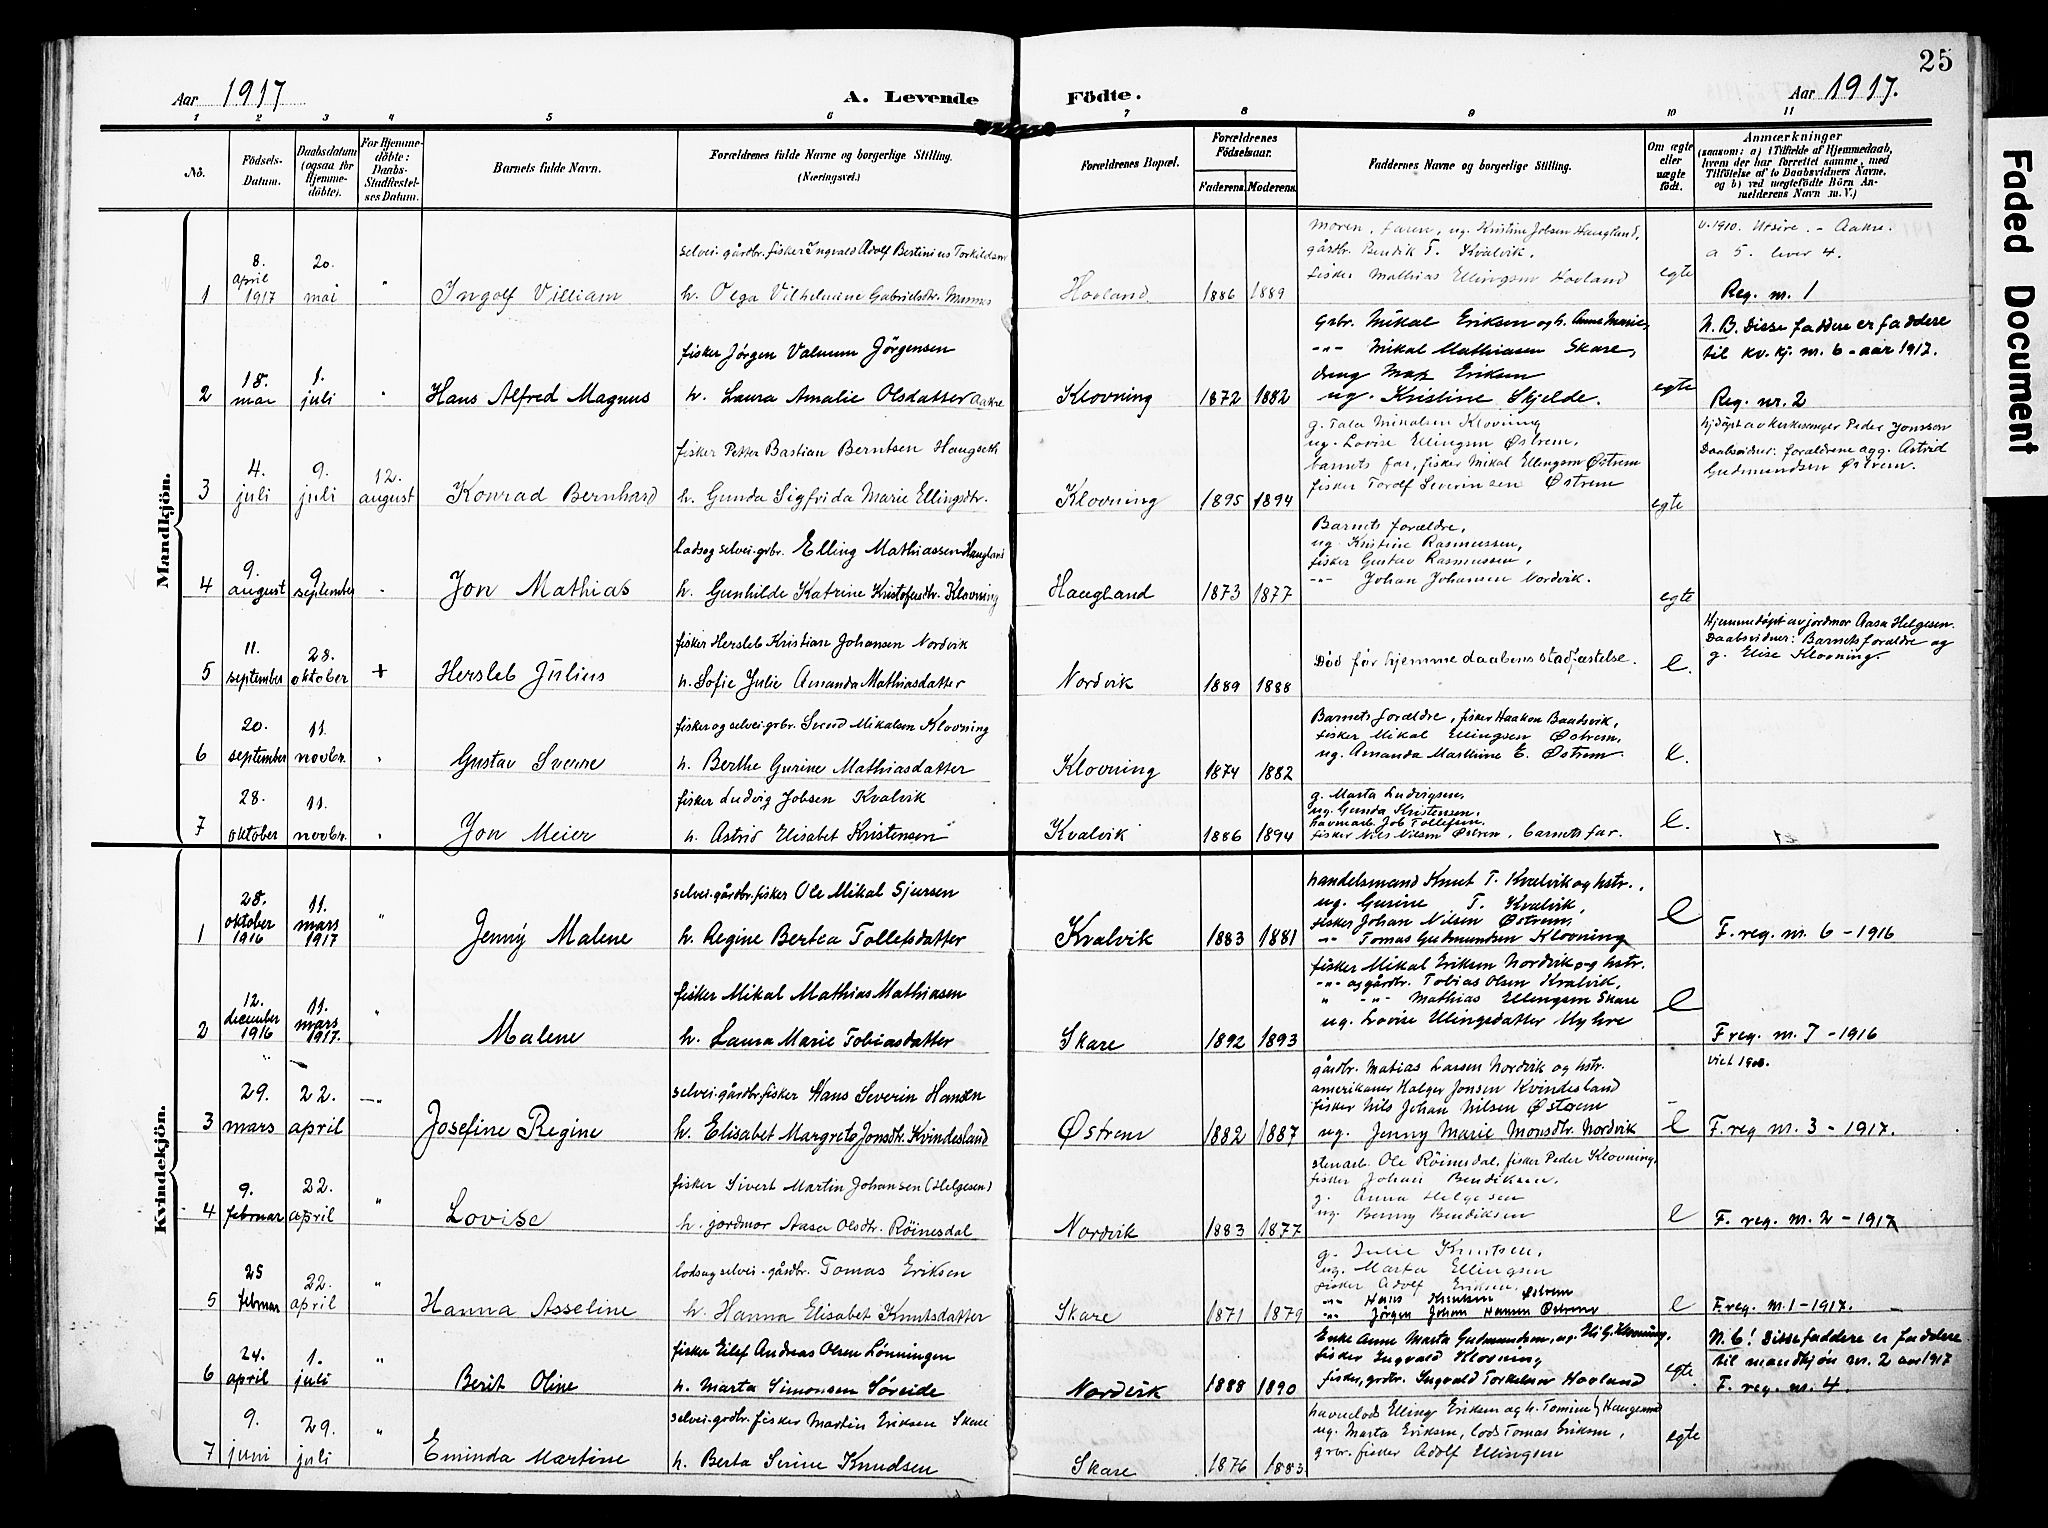 25
Aar 1917
A. Levende Födte.
Aar 1917.
1 2 3 4 5 6 7 8 9 10 11
No.
Födsels-Datum.
Daabsdatum (ogsaa for Hjemme-döbte).
For Hjemme-döbte: Daabs-Stadfæstel-ses Datum.
Barnets fulde Navn.
Forældrenes fulde Navne og borgerlige Stilling. (Næringsvei.)
Forældrenes Bopæl.
Forældrenes Födselsaar.
Faderens. Moderens.
Faddernes Navne og borgerlige Stilling.
Om ægte eller uægte födt.
Anmærkninger
(saasom: a) i Tilfælde af Hjemmedaab, hvem der har forrettet samme, med Tilföielse af to Daabsvidners Navne, og b) ved uægtefödte Börn An-melderens Navn m. V.)
Mandkjön.
1
8. april 1917
20. mai
"
Ingolf Villiam
selvei. gårdbr. fisker Ingvald Adolf Bertinius Torkildsen
h. Olga Vilhelmine Gabrielsdtr. Mannes
Hovland
1886 1889
Moren, faren, ug. Kristine Jobsen Haugland,
gårdbr. Bendik T. Kvalvik,
fisker Mathias Ellingsen Hovland
egte
v. 1910. Utsire. - Aakre.
a 5. lever 4.
Reg. nr. 1
2
18. mai
1. juli
"
Hans Alfred Magnus
fisker Jørgen Valnum Jørgensen
h. Laura Amalie Olsdatter Aakre
Klovning
1872 1882
Grbr. Mikal Eriksen og h. Anne Marie,
-"- Mikal Mathiasen Skare,
dreng Eriksen
ug. Kristine Skjelde.
egte
N.B. Disse faddere er faddere
til kv.kj. nr. 6 - aar 1917.
Reg. nr. 2
3
4. juli
9. juli
12. august
Konrad Bernhard
fisker Petter Bastian Berntsen Haugseth
h. Gunda Sigfrida Marie Ellingsdtr.
Klovning
1895 1894
g. Tala Mikalsen Klovning
ug. Lovise Ellingsen Østrem,
barnets far, fisker Mikal Ellingsen Østrem
fisker Torolf Severinsen Østrem
egte
hj.døpt av kirkesanger Peder Jonsson
Daabsvidner: forældrene og g. Astrid
Gudmundsen Østrem.
4
9. august
9. september
"
Jon Mathias
lods og selvei-grbr. Elling Mathiassen Haugland
h. Gunhilde Katrine Kristofersdtr. Klovning
Haugland
1873 1877
Barnets forældre,
ug. Kristine Rasmussen,
fisker Gustav Rasmussen,
-"- Johan Johansen Nordvik.
egte
5
11. september
28. oktober
+
Hersleb Julius
fisker Hersleb Kristian Johansen Nordvik
h. Sofie Julie Amanda Mathiasdatter
Nordvik
1889 1888
Død før hjemmedaabens stadfæstelse.
e.
Hjemmedøpt av jordmor Aasa Helgesen.
Daabsvidner: Barnets forældre og
g. Elise Klovning.
6
20. september
11. novbr.
"
Gustav Sverre
fisker og selvei-grbr. Svend Mikalsen Klovning
h. Berthe Gurine Mathiasdatter
Klovning
1874 1882
Barnets forældre, fisker Haakon Baadsvik,
fisker Mikal Ellingsen Østrem,
ug. Amanda Marthine E. Østrem.
e.
7
28. oktober
11. novbr.
"
Jon Meier
fisker Ludvig Jobsen Kvalvik
h. Astrid Elisabet Kristensen
Kvalvik
1886 1894
g. Marta Ludvigsen,
ug. Gunda Kristensen,
havnearb. Job Tollefsen,
fisker Nils Nilsen Østrem, barnets far.
e.
Kvindekjön.
1
28. oktober 1916
11. mars 1917
"
Jenny Malene
selvei. gårdbr. fisker Ole Mikal Sjursen
h. Regine Bertea Tollefsdatter
Kvalvik
1883 1881
handelsmand Knut T. Kvalvik og hstr.,
ug. Gurine T. Kvalvik,
fisker Johan Nilsen Østrem
-"- Tomas Gudmundsen Klovning
e
F. reg. nr. 6 - 1916
2
12. december 1916
11. mars 1917.
"
Malene
fisker Mikal Mathias Mathiasen
h. Laura Marie Tobiasdatter
Skare
1892 1893
fisker Mikal Eriksen Nordvik og hstr.
-"- og gårdbr. Tobias Olsen Kvalvik,
" -"- Mathias Ellingsen Skare
ug. Lovise Ellingsdatter Myhre
e
F. reg. nr. 7 - 1916
3
29. mars
22. april
-"
Josefine Regine
selvei. gårdbr. fisker Hans Severin Hansen
h. Elisabet Margrete Jonsdtr. Kvindesland
Østrem
1882 1887
gårdbr. Matias Larsen Nordvik og hstr.
amerikaner Holger Jonsen Kvindesland
fisker Nils Johan Nilsen Østrem
ug. Jenny Marie Monsdtr. Nordvik
e
viet 1908.
F. reg nr. 3 - 1917.
4
9. februar
22. april
"
Lovise
fisker Sivert Martin Johansen (Helgesen)
h. jordmor Aasa Olsdtr. Røinesdal
Nordvik
1883 1877
stenarb. Ole Røinesdal, fisker Peder Klovning,
fisker Johan Bendiksen,
g. Anna Helgesen
ug. Benny Bendiksen
e
F. reg. nr. 2 - 1917
5
25 februar
22. april
"
Hanna Asseline
lods og selvei-gårdbr. Tomas Eriksen
h. Hanna Elisabet Knutsdatter
Skare
1871 1879
g. Julie Knutsen,
ug. Marta Ellingsen
fisker Adolf Eriksen,
-"- Hans Knutsen Østrem
-"- Jørgen Johan Hansen Østrem
e
F. reg. nr. 1 - 1917.
6
24. april
1. juli
"
Berit Oline
fisker Eilef Andreas Olsen Lønningen
h. Marta Simonsen Søreide
Nordvik
1888 1890
Enke Anne Marta Gudmundsen, ug. Eli G. Klovning,
fisker Ingvald Klovning
fisker, grdbr. Ingvald Torkelsen Hovland
egte.
N.B! Disse faddere er faddere
til mandkjøn nr. 2 aar 1917
F. reg. nr. 4.
7
9. juni
29. juli
"
Eminda Martine
selvei-grdbr. fisker Martin Eriksen Skare
h. Berta Serine Knudsen
Skare
1876 1883
havnelods Elling Eriksen og h. Tomine, Haugesund
ug. Marta Eriksen, lods Tomas Eriksen,
grbr. fisker Adolf Ellingsen
egte
Faded Document